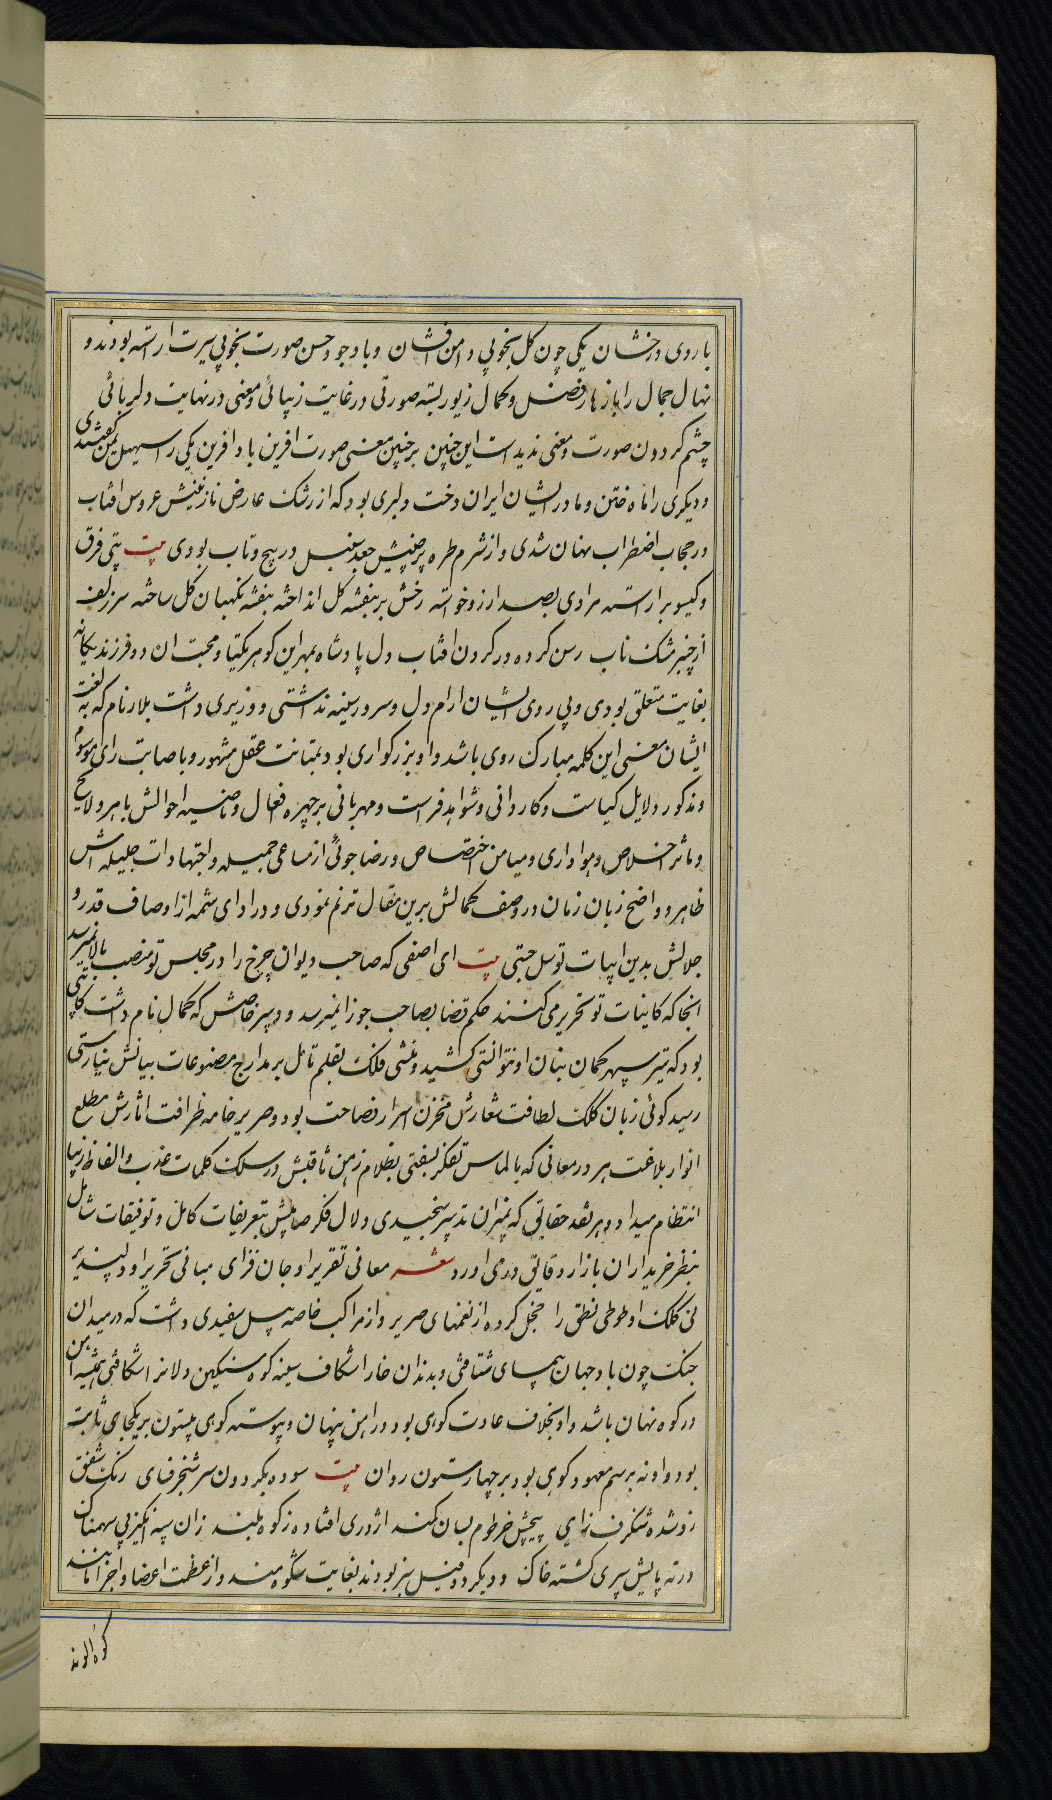 با روی درخشان یکی چون کل بخوبی دامن افشان و با وجود حسن صورت بخوبی سیرت اراسته بودند و
نهال جمال را بازهار فضل و کمال زیور بسته صورتی در غایت زیبائی و معنی در نهایت دلربائی
چشم کردون صورت و معنی ندیدست این چنین بر چنین معنی صورت افرین باد افرین یکی را سهیل یمن گفتندی
و دیکری را ماه ختن و مادر ایشان ایران دخت دلبری بود که از رشک عارض نازنینش عروس افتاب
در حجاب اضطراب نهان شدی و از شرم طره پرچینش جعد سنبل در پیچ و تاب بودی بیت پتی فرق
و کیسو بر اراسته مرادی بصد ارزو خواسته رخش بر بنفشه کل انداخته بنفشه نکهبان کل ساخته سر زلف
از چنبر مشک ناب رسن کرده در کردن افتاب دل پادشاه بمهر این کوهر یکتا و محبت ان دو فرزند یکانه
بغایت متعلق بودی و بی روی ایشان ارام دل و سرور سینه نداشتی و وزیری داشت بلار نام که به لغت
ایشان معنی این کلمه مبارک روی باشد و او بزرکواری بود بمتانت عقل مشهور و باصابت رای موسوم
و مذکور دلایل کیاست و کاردانی و شواهد فراست و مهربانی بر چهره افعال و ناصیه احوالش باهر و لایح
و ماثر اخلاص و هواداری و میامن اختصاص و رضا جوئی از مساعی جمیله و اجتهادات جلیله اش
ظاهر و واضح زبان زمان در وصف کمالش برین مقال ترنم نمودی و در ادای شمه از اوصاف قدر و
جلالش بدین ابیات توسل جستی بیت ای اصفی که صاحب دیوان چرخ را در مجلس تو منصب بالا نمیرسد
انجا که کاینات تو تحریر می کنند حکم قضا بصاحب جوزا نمیرسد و دبیر خاصش که کمال نام داشت کاتبی
بود که تیر سپهر کمان بنان او نتوانستی کشید و منشی فلک بقلم تامل بر مدارج مصنوعات بیانش نیارستی
رسید کوئی زبان کلک لطافت شعارش مخزن اسرار فصاحت بود و صریر خامه ظرافت اثارش مطلع
انوار بلاغت هر در معانی که بالماس تفکر بسفتی بنظام ذهن ثاقبش در سلک کلمات عذب و الفاظ زیبا
انتظام میداد و هر نقد حقایق که بمیزان تدبیر سنجیدی دلال فکر صایبش بتعریفات کامل و توفیقات شامل
بنظر خریداران بازار دقایق در می اورد شعر معانی تقریر او جان فزای مبانی تحریر او دلپذیر
نی کلک او طوطی نطق را خجل کرده از نغمهای صریر و از مراکب خاصه پیل سفیدی داشت که در میدان
جنک چون باد جهان پیمای شتافتی و بدندان خارا شکاف سینه کوه سنکین دلانرا شکافتی همیشه اهن
در کوه نهان باشد و او بخلاف عادت کوهی بود در اهن پنهان و پیوسته کوهی بیستون بر یکجای ثابت
بود و او نه برسم معهود کوهی بود بر چهار ستون روان بیت سوده بکردون سر شنجرفسای رنک شفق
زو شده شنکرف زای پیچش خرطوم بسان کمند اژدری افتاده ز کوه بلند زان سیه انکیز پی سهمناک
در ته پایش سپری کشته خاک و دیکر دو فیل نیز بودند بغایت شکوهمند و از عظمت اعضا و اجزا مانند
کوه الوند